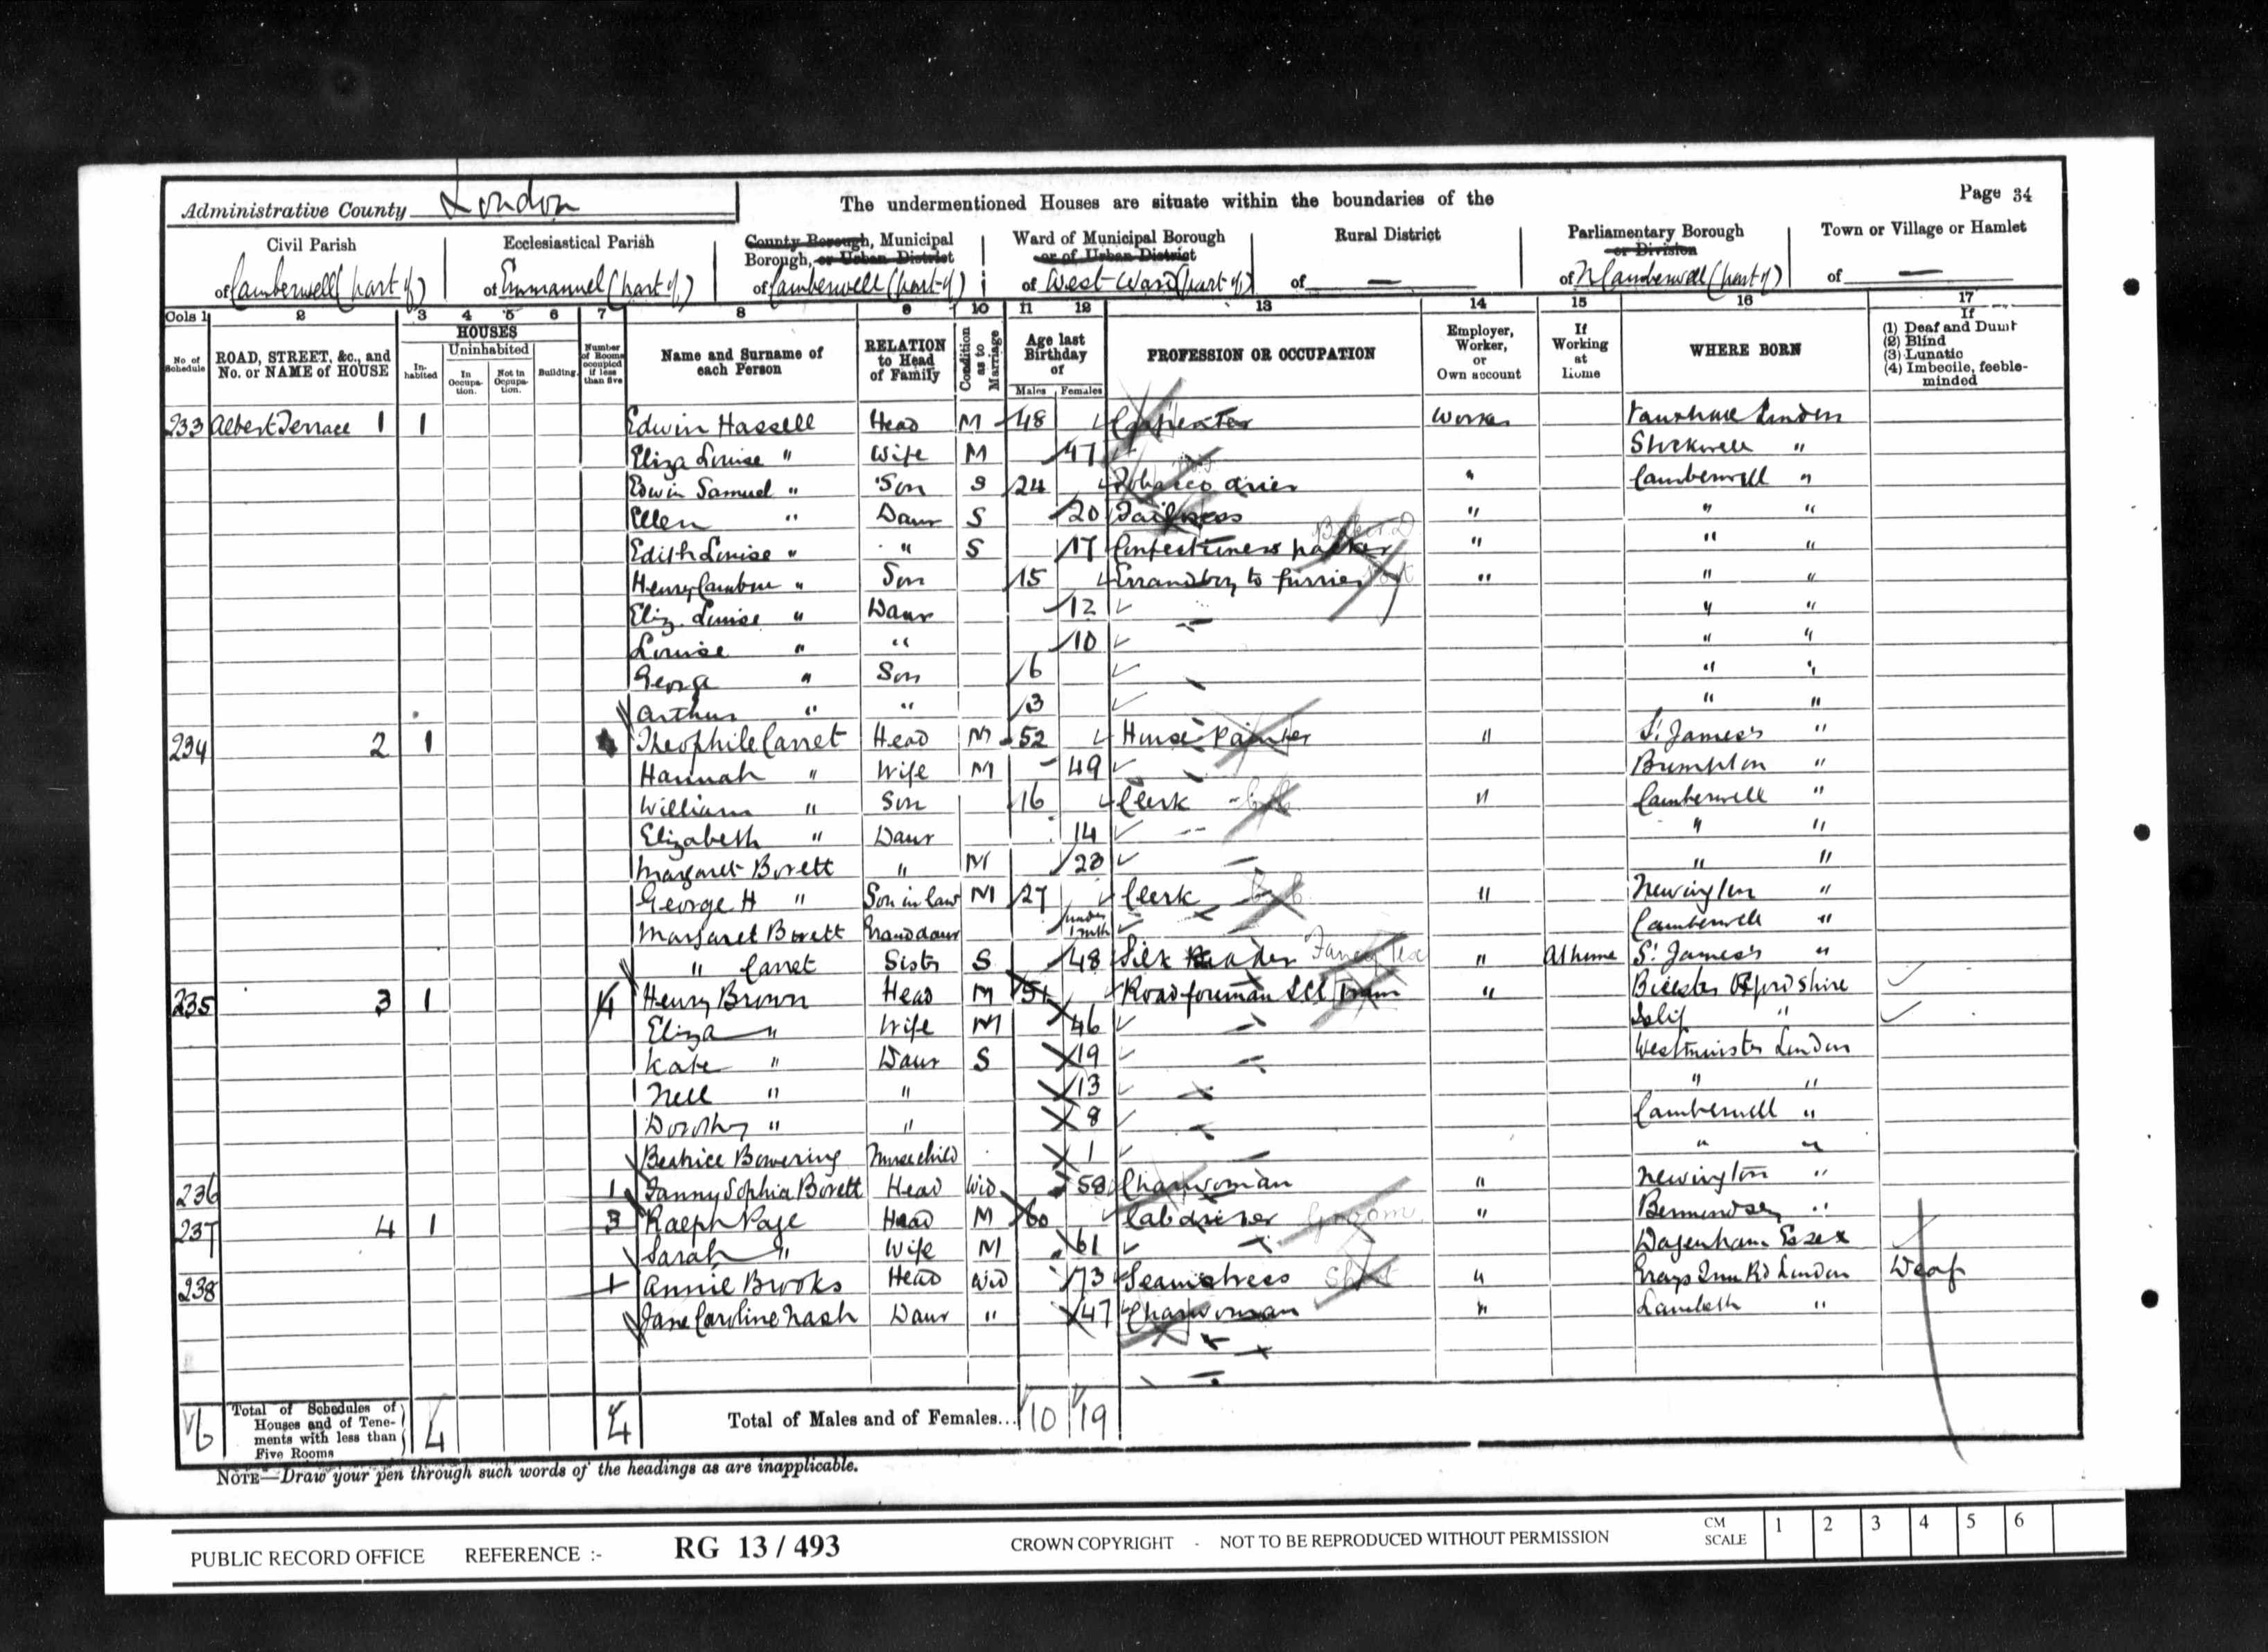 Page 34
Administrative County London The undermentioned Houses are situate within the boundaries of the
Civil Parish Ecclesiastical Parish County Borough, Municipal Borough, or Urban District Ward of Municipal Borough or of Urban District Rural District Parliamentary Borough or Division Town or Village or Hamlet
of Camberwell (part of) of Emmanuel (part of) of Camberwell (part of) of West Ward (part of) of — of N Camberwell (part of) of —
Cols 1 2 3 4 5 6 7 8 9 10 11 12 13 14 15 16 17
No. of Schedule ROAD, STREET, &c., and No. or NAME of HOUSE HOUSES Inhabited Uninhabited In Occupation. Not in Occupation. Building. Number of Rooms occupied if less than five Name and Surname of each Person RELATION to Head of Family Condition as to Marriage Age last Birthday of Males Females PROFESSION OR OCCUPATION Employer, Worker, or Own account If Working at Home WHERE BORN If (1) Deaf and Dumb (2) Blind (3) Lunatic (4) Imbecile, feeble-minded
233 Albert Terrace 1 1 Edwin Hassell Head M 48 Carpenter Worker Vauxhall London
Eliza Louise " Wife M 47 Stockwell "
Edwin Samuel " Son S 24 Tobacco drier " Camberwell "
Ellen " Daur S 20 Tailoress " " "
Edith Louise " " S 17 Confectioners packer " " "
Henry " Son 15 Errand boy to furrier " " "
Eliz. Louise " Daur 12 " "
Louise " " 10 " "
George " Son 6 " "
Arthur " " 3 " "
234 2 1 Theophile Carret Head M 52 House Painter " St James's "
Hannah " Wife M 49 Brompton "
William " Son 16 Clerk " Camberwell "
Elizabeth " Daur 14 " "
Margaret Borett " M 23 " "
George H " Son in law M 27 Clerk " Newington "
Margaret Borett Granddaur under 1 mth Camberwell "
" Carret Sister S 48 Silk " At home St James's "
235 3 1 4 Henry Brown Head M 51 Road foreman LCC Tram " Bicester Oxfordshire
Eliza " Wife M 46 Islip "
Kate " Daur S 19 Westminster London
Nell " " 13 " "
Dorothy " " 8 Camberwell "
Beatrice Bowering Nurse child 1 " "
236 1 Fanny Sophia Borett Head Wid 58 Charwoman " Newington "
237 4 1 3 Ralph Page Head M 60 Cab driver Groom " Bermondsey "
Sarah " Wife M 61 Dagenham Essex
238 1 Annie Brooks Head Wid 73 Seamstress Shirt " Grays Inn Rd London Deaf
Jane Caroline Nash Daur " 47 Charwoman " Lambeth "
6 Total of Schedules of Houses and of Tenements with less than Five Rooms 4 4 Total of Males and of Females... 10 19
NOTE—Draw your pen through such words of the headings as are inapplicable.
PUBLIC RECORD OFFICE REFERENCE :- RG 13 / 493 CROWN COPYRIGHT - NOT TO BE REPRODUCED WITHOUT PERMISSION CM SCALE 1 2 3 4 5 6